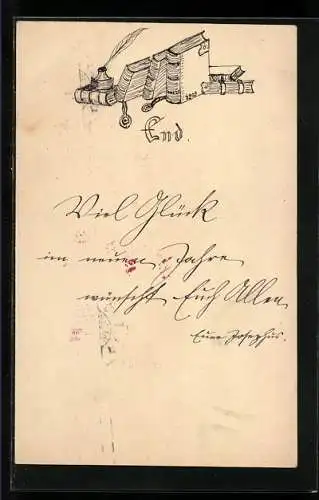 End.
Viel Glück
im neuen Jahre
wünscht Euch Allen
Euer Josephus.